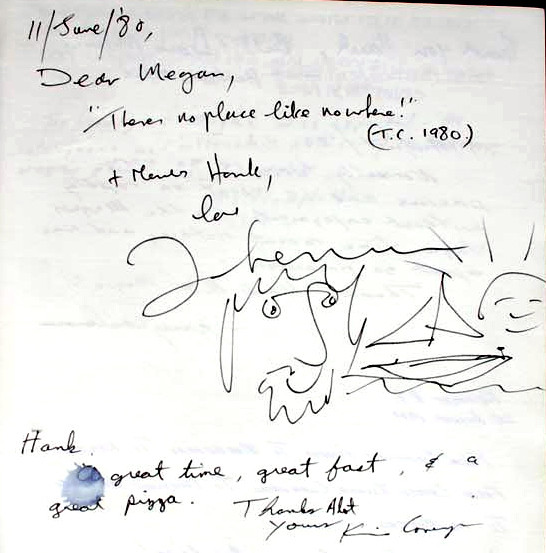 11/June/'80,
Dear Megan,
"Theres no place like nowhere!"
(T.C. 1980)
Hank,
love
Hank.
a great time, great fast, & a
great pizza. Thanks Alot
Yours